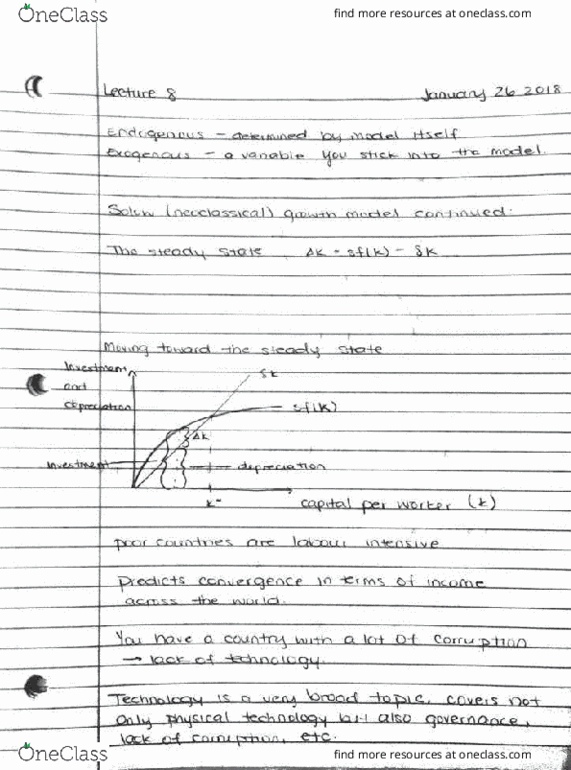 OneClass find more resources at oneclass.com
Lecture 8 January 26 2018
Endogenous - determined by model itself
Exogenous - a variable you stick into the model.
Solow (neoclassical) growth model continued.
The steady state Δk = sf(k) - δk
Moving toward the steady state
Investment δk
and
depreciation sf(k)
Δk
investment depreciation
k* capital per worker (k)
poor countries are labour intensive
Predicts convergence in terms of income
across the world.
You have a country with a lot of corruption
→ lack of technology.
Technology is a very broad topic, covers not
only physical technology but also governance,
lack of corruption, etc.
OneClass find more resources at oneclass.com